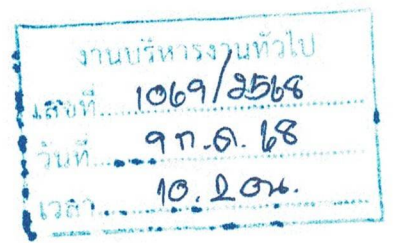 งานบริหารงานทั่วไป
เลขที่ 1069/2568
วันที่ 9 ก.ค. 68
เวลา 10.20น.